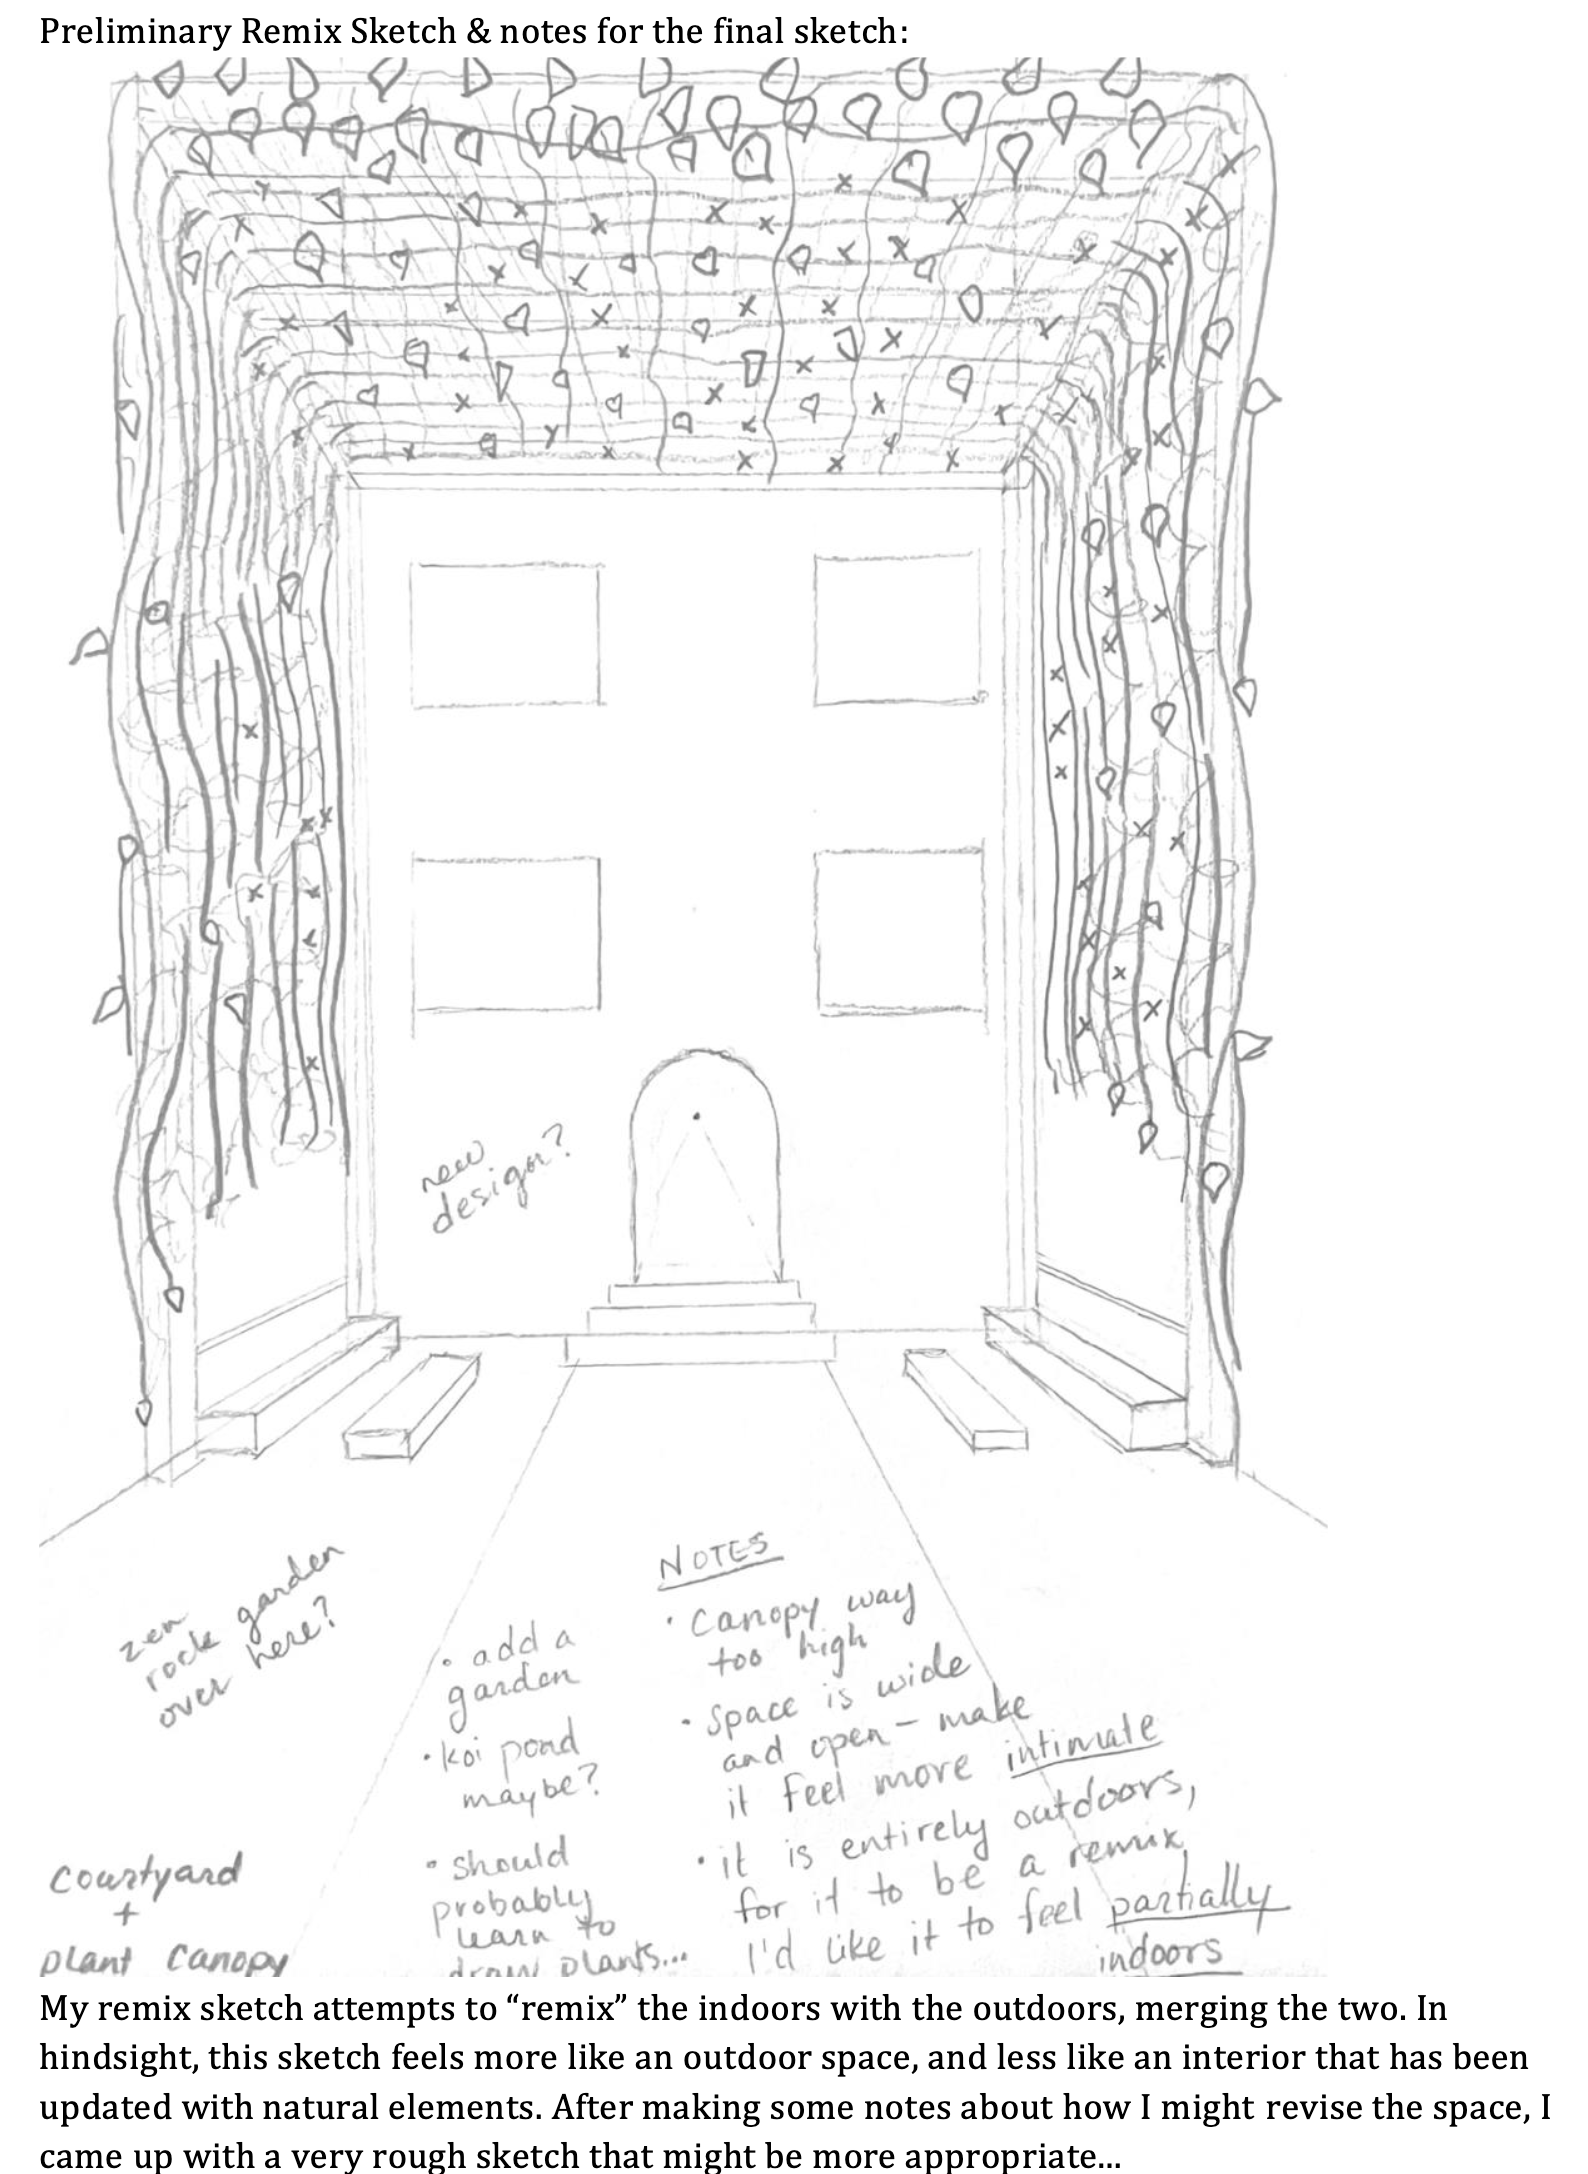 Preliminary Remix Sketch & notes for the final sketch:
new
design?
zen
rock garden
over here?
NOTES
• add a
garden
• koi pond
maybe?
• should
probably
learn to
draw plants...
• Canopy way
too high
• Space is wide
and open - make
it feel more intimate
• it is entirely outdoors,
for it to be a remix,
I'd like it to feel partially
indoors
Courtyard
+
Plant Canopy
My remix sketch attempts to “remix” the indoors with the outdoors, merging the two. In
hindsight, this sketch feels more like an outdoor space, and less like an interior that has been
updated with natural elements. After making some notes about how I might revise the space, I
came up with a very rough sketch that might be more appropriate...